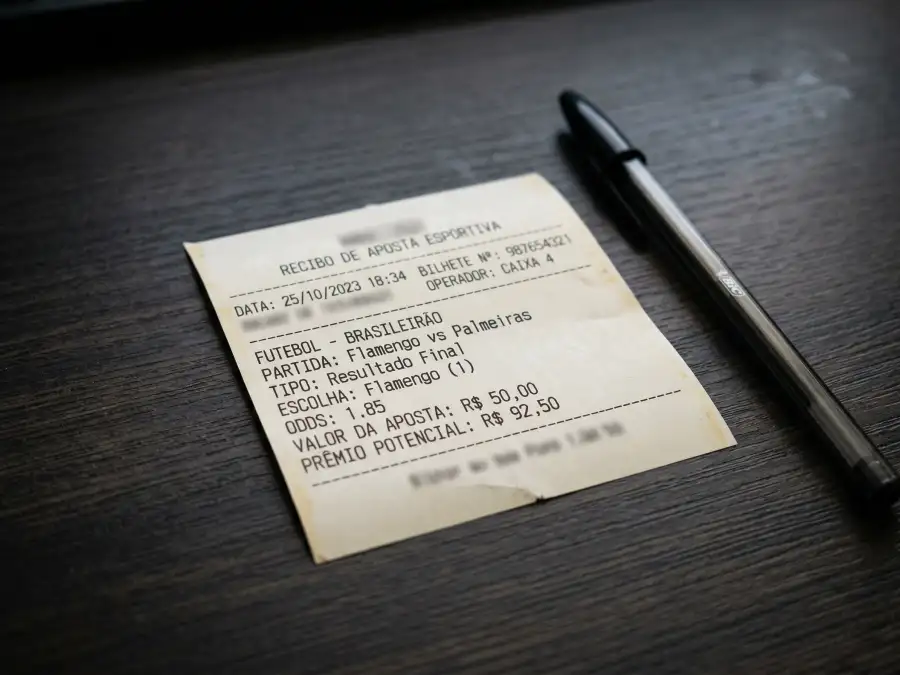 RECIBO DE APOSTA ESPORTIVA
DATA: 25/10/2023 18:34 BILHETE Nº: 987654321
OPERADOR: CAIXA 4
FUTEBOL - BRASILEIRÃO
PARTIDA: Flamengo vs Palmeiras
TIPO: Resultado Final
ESCOLHA: Flamengo (1)
ODDS: 1.85
VALOR DA APOSTA: R$ 50,00
PRÊMIO POTENCIAL: R$ 92,50
BIC